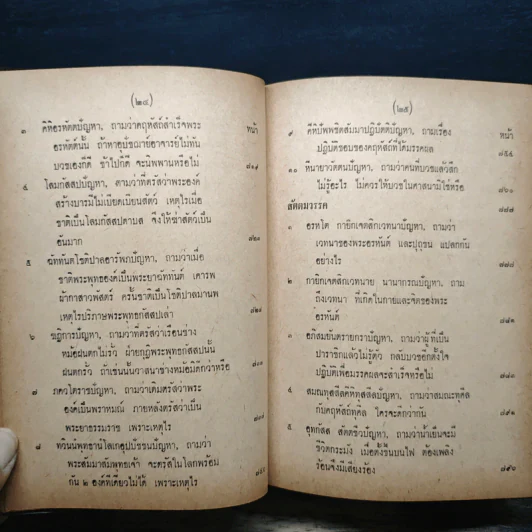 (๒๔)
๓ คิหิอรหัตตปัญหา, ถามว่าคฤหัสถ์สำเร็จพระ หน้า
อรหัตตนั้น ถ้าหาอุปัชฌาย์อาจารย์ไม่ทัน
บวชเองก็ดี ช้าไปก็ดี จะนิพพานหรือไม่ ๗๑๙
๔ โลมกัสสปปัญหา, ถามว่าที่ตรัสว่าพระองค์
สร้างบารมีไม่เบียดเบียนสัตว์ เหตุไรเมื่อ
ชาติเป็นโลมกัสสปดาบส จึงให้ฆ่าสัตว์เป็น
อันมาก
๕ ฉัททันตโชติปาลอารัพภปัญหา, ถามว่าเมื่อ
ชาติพระพุทธองค์เป็นพระยาฉัททันต์ เคารพ
ผ้ากาสาวพัสตร์ ครั้นชาติเป็นโชติปาลมานพ
เหตุไรบริภาษพระพุทธกัสสปเล่า
๖ ฆฏิการปัญหา, ถามว่าที่ตรัสว่าเรือนช่าง
หม้อฝนตกไม่รั่ว ฝ่ายกุฎีพระพุทธกัสสปนั้น
ฝนตกรั่ว ถ้าเช่นนั้นวาสนาช่างหม้อมิดีกว่าหรือ
๗ ภควโตราชปัญหา, ถามว่าเดิมตรัสว่าพระ
องค์เป็นพราหมณ์ ภายหลังตรัสว่าเป็น
พระยาธรรมราช เพราะเหตุไร
ทวินนํพุทธานํโลเกอนุปปัชชนปัญหา, ถามว่า
พระสัมมาสัมพุทธเจ้า จะตรัสในโลกพร้อม
กัน ๒ องค์ทีเดียวไม่ได้ เพราะเหตุไร
(๒๕)
๙ คิหิปัพพชิตสัมมาปฏิบัติปัญหา, ถามเรื่อง หน้า
ปฏิบัติชอบของคฤหัสถ์ที่ได้มรรคผล
๑๐ หีนายาวัตตนปัญหา, ถามว่าคนที่บวชแล้วสึก
ไม่รู้อะไร ไม่ควรให้บวชในศาสนามิใช่หรือ
สัตตมวรรค
๑ อรหโต กายิกเจตสิกเวทนาปัญหา, ถามว่า
เวทนาของพระอรหันต์ และปุถุชน แปลกกัน
อย่างไร
๒ กายิกเจตสิกเวทนาย นานากรณปัญหา, ถาม
ถึงเวทนา ที่เกิดในกายและจิตของพระ
อรหันต์
๓ อภิสมยันตรายกราปัญหา, ถามว่าผู้ที่เป็น
ปาราชิกแล้วไม่รู้ตัว กลับบวชอีกตั้งใจ
ปฏิบัติเพื่อมรรคผลจะสำเร็จหรือไม่
๔ สมณทุสสีลคิหิทุสสีลปัญหา, ถามว่าสมณะทุศีล
กับคฤหัสถ์ทุศีล ใครจะดีกว่ากัน
๕ อุทกัสส สัตตชีวปัญหา, ถามว่าน้ำเย็นจะมี
ชีวิตกระมัง เมื่อตั้งขึ้นบนไฟ ต้องเพลิง
ร้อนจึงมีเสียงร้อง